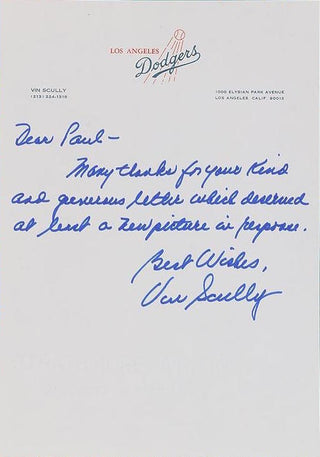 LOS ANGELES Dodgers
VIN SCULLY
(213) 224-1316
1000 ELYSIAN PARK AVENUE
LOS ANGELES, CALIF. 90012
Dear Paul-
Many thanks for your kind
and generous letter which deserved
at least a new picture in response.
Best Wishes,
Vin Scully